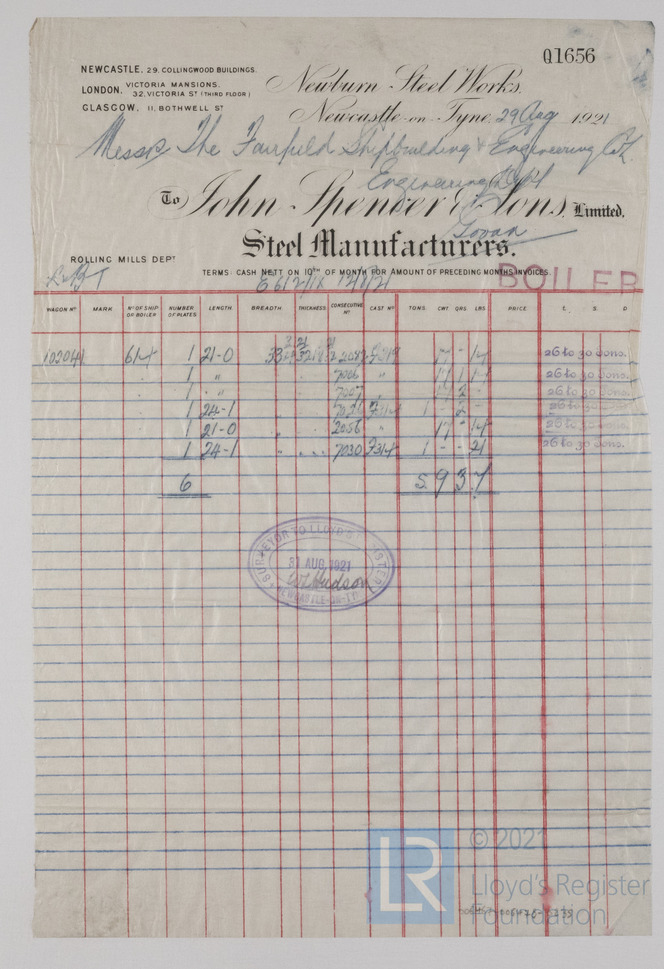 Q1656
NEWCASTLE. 29. COLLINGWOOD BUILDINGS.
LONDON. VICTORIA MANSIONS.
32, VICTORIA ST (THIRD FLOOR)
GLASGOW, 11, BOTHWELL ST
Newburn Steel Works.
Newcastle-on-Tyne, 29 Aug 1921
Messrs The Fairfield Shipbuilding & Engineering Co Ld
Engineering Dept
To John Spencer & Sons, Limited.
Govan
Steel Manufacturers.
ROLLING MILLS DEPT
TERMS: CASH NETT ON 10TH OF MONTH FOR AMOUNT OF PRECEDING MONTHS INVOICES.
BOILER
WAGON No MARK No OF SHIP OR BOILER NUMBER OF PLATES LENGTH BREADTH THICKNESS CONSECUTIVE No CAST No TONS. CWT. QRS. LBS. PRICE £ S D
614 1 21-0 17 - 14 26 to 30 tons.
1 " 7006 " 26 to 30 tons.
1 " 7007 26 to 30 tons.
1 24-1 1 - 2 - 26 to 30 tons.
1 21-0 2056 " 17 - 14 26 to 30 tons.
1 24-1 " 7030 1 - - 21 26 to 30 tons.
6 5 9 3 7
SURVEYOR TO LLOYD'S REGISTER
31 AUG 1921
Hudson
NEWCASTLE-ON-TYNE
LR
© 2021
Lloyd's Register
Foundation